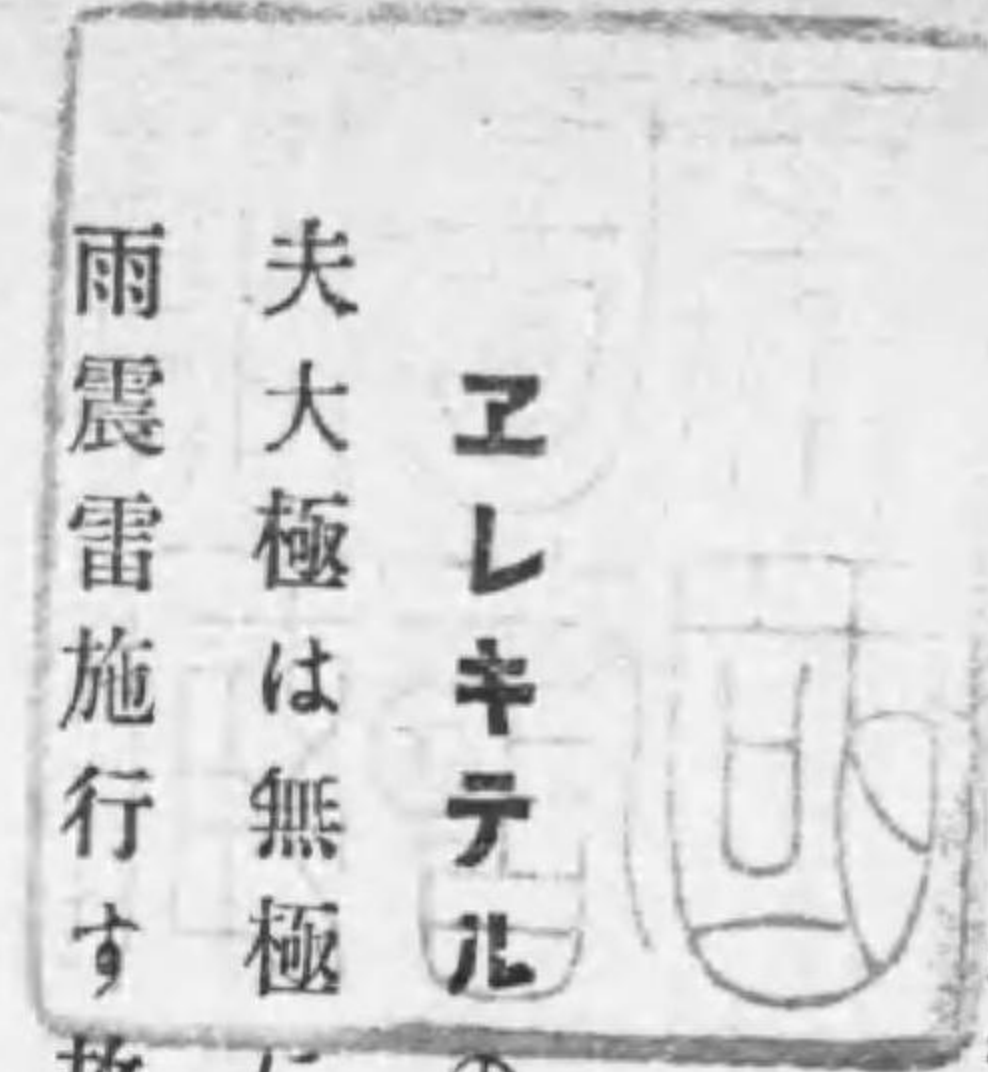 ヱレキテルの
夫大極は無極に
雨震雷施行す故